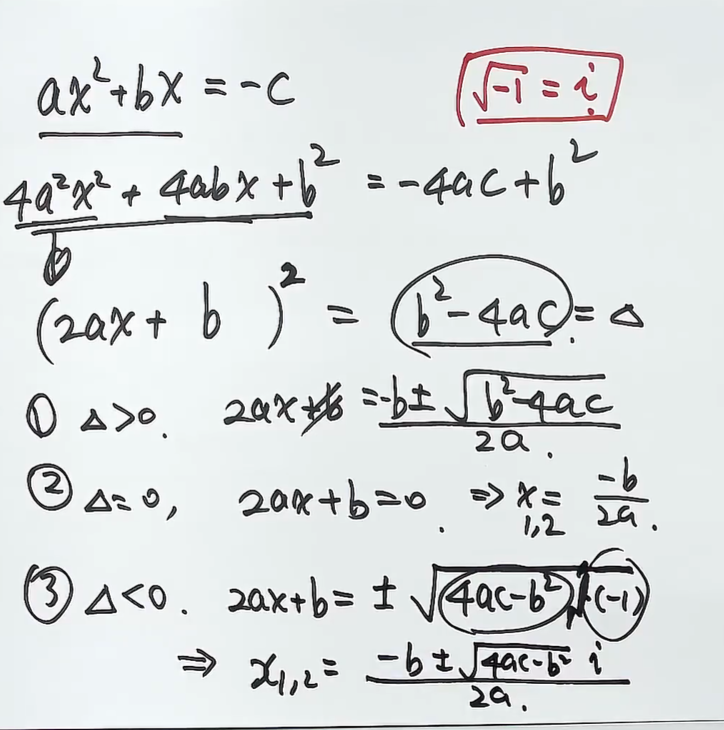 ax²+bx = -c
√-1 = i
4a²x² + 4abx + b² = -4ac + b²
b
(2ax + b )² = b²-4ac = Δ
① Δ>0. 2ax+b = -b ± √b²-4ac / 2a.
② Δ=0, 2ax+b=0. ⇒ x₁,₂ = -b / 2a.
③ Δ<0. 2ax+b = ± √(4ac-b²)·(-1)
⇒ x₁,₂ = -b ± √4ac-b² i / 2a.